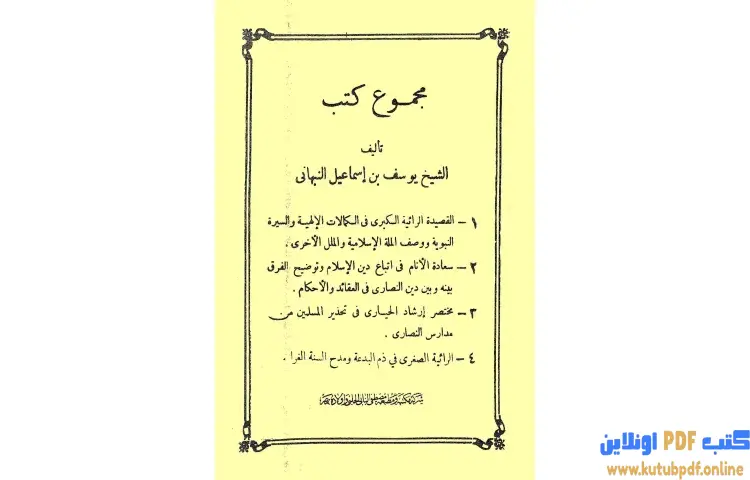 مجموع كتب
تأليف
الشيخ يوسف بن إسماعيل النبهانى
١ – القصيدة الرائية الكبرى فى الكمالات الإلهية والسيرة
النبوية ووصف الملة الإسلامية والملل الأخرى .
٢ – سعادة الأنام فى اتباع دين الإسلام وتوضيح الفرق
بينه وبين دين النصارى فى العقائد والأحكام .
٣ – مختصر إرشاد الحيارى فى تحذير المسلمين من
مدارس النصارى .
٤ – الرائية الصغرى في ذم البدعة ومدح السنة الغرا .
شركة مكتبة ومطبعة مصطفى البابى الحلبى وأولاده بمصر
كتب PDF اونلاين
www.kutubpdf.online